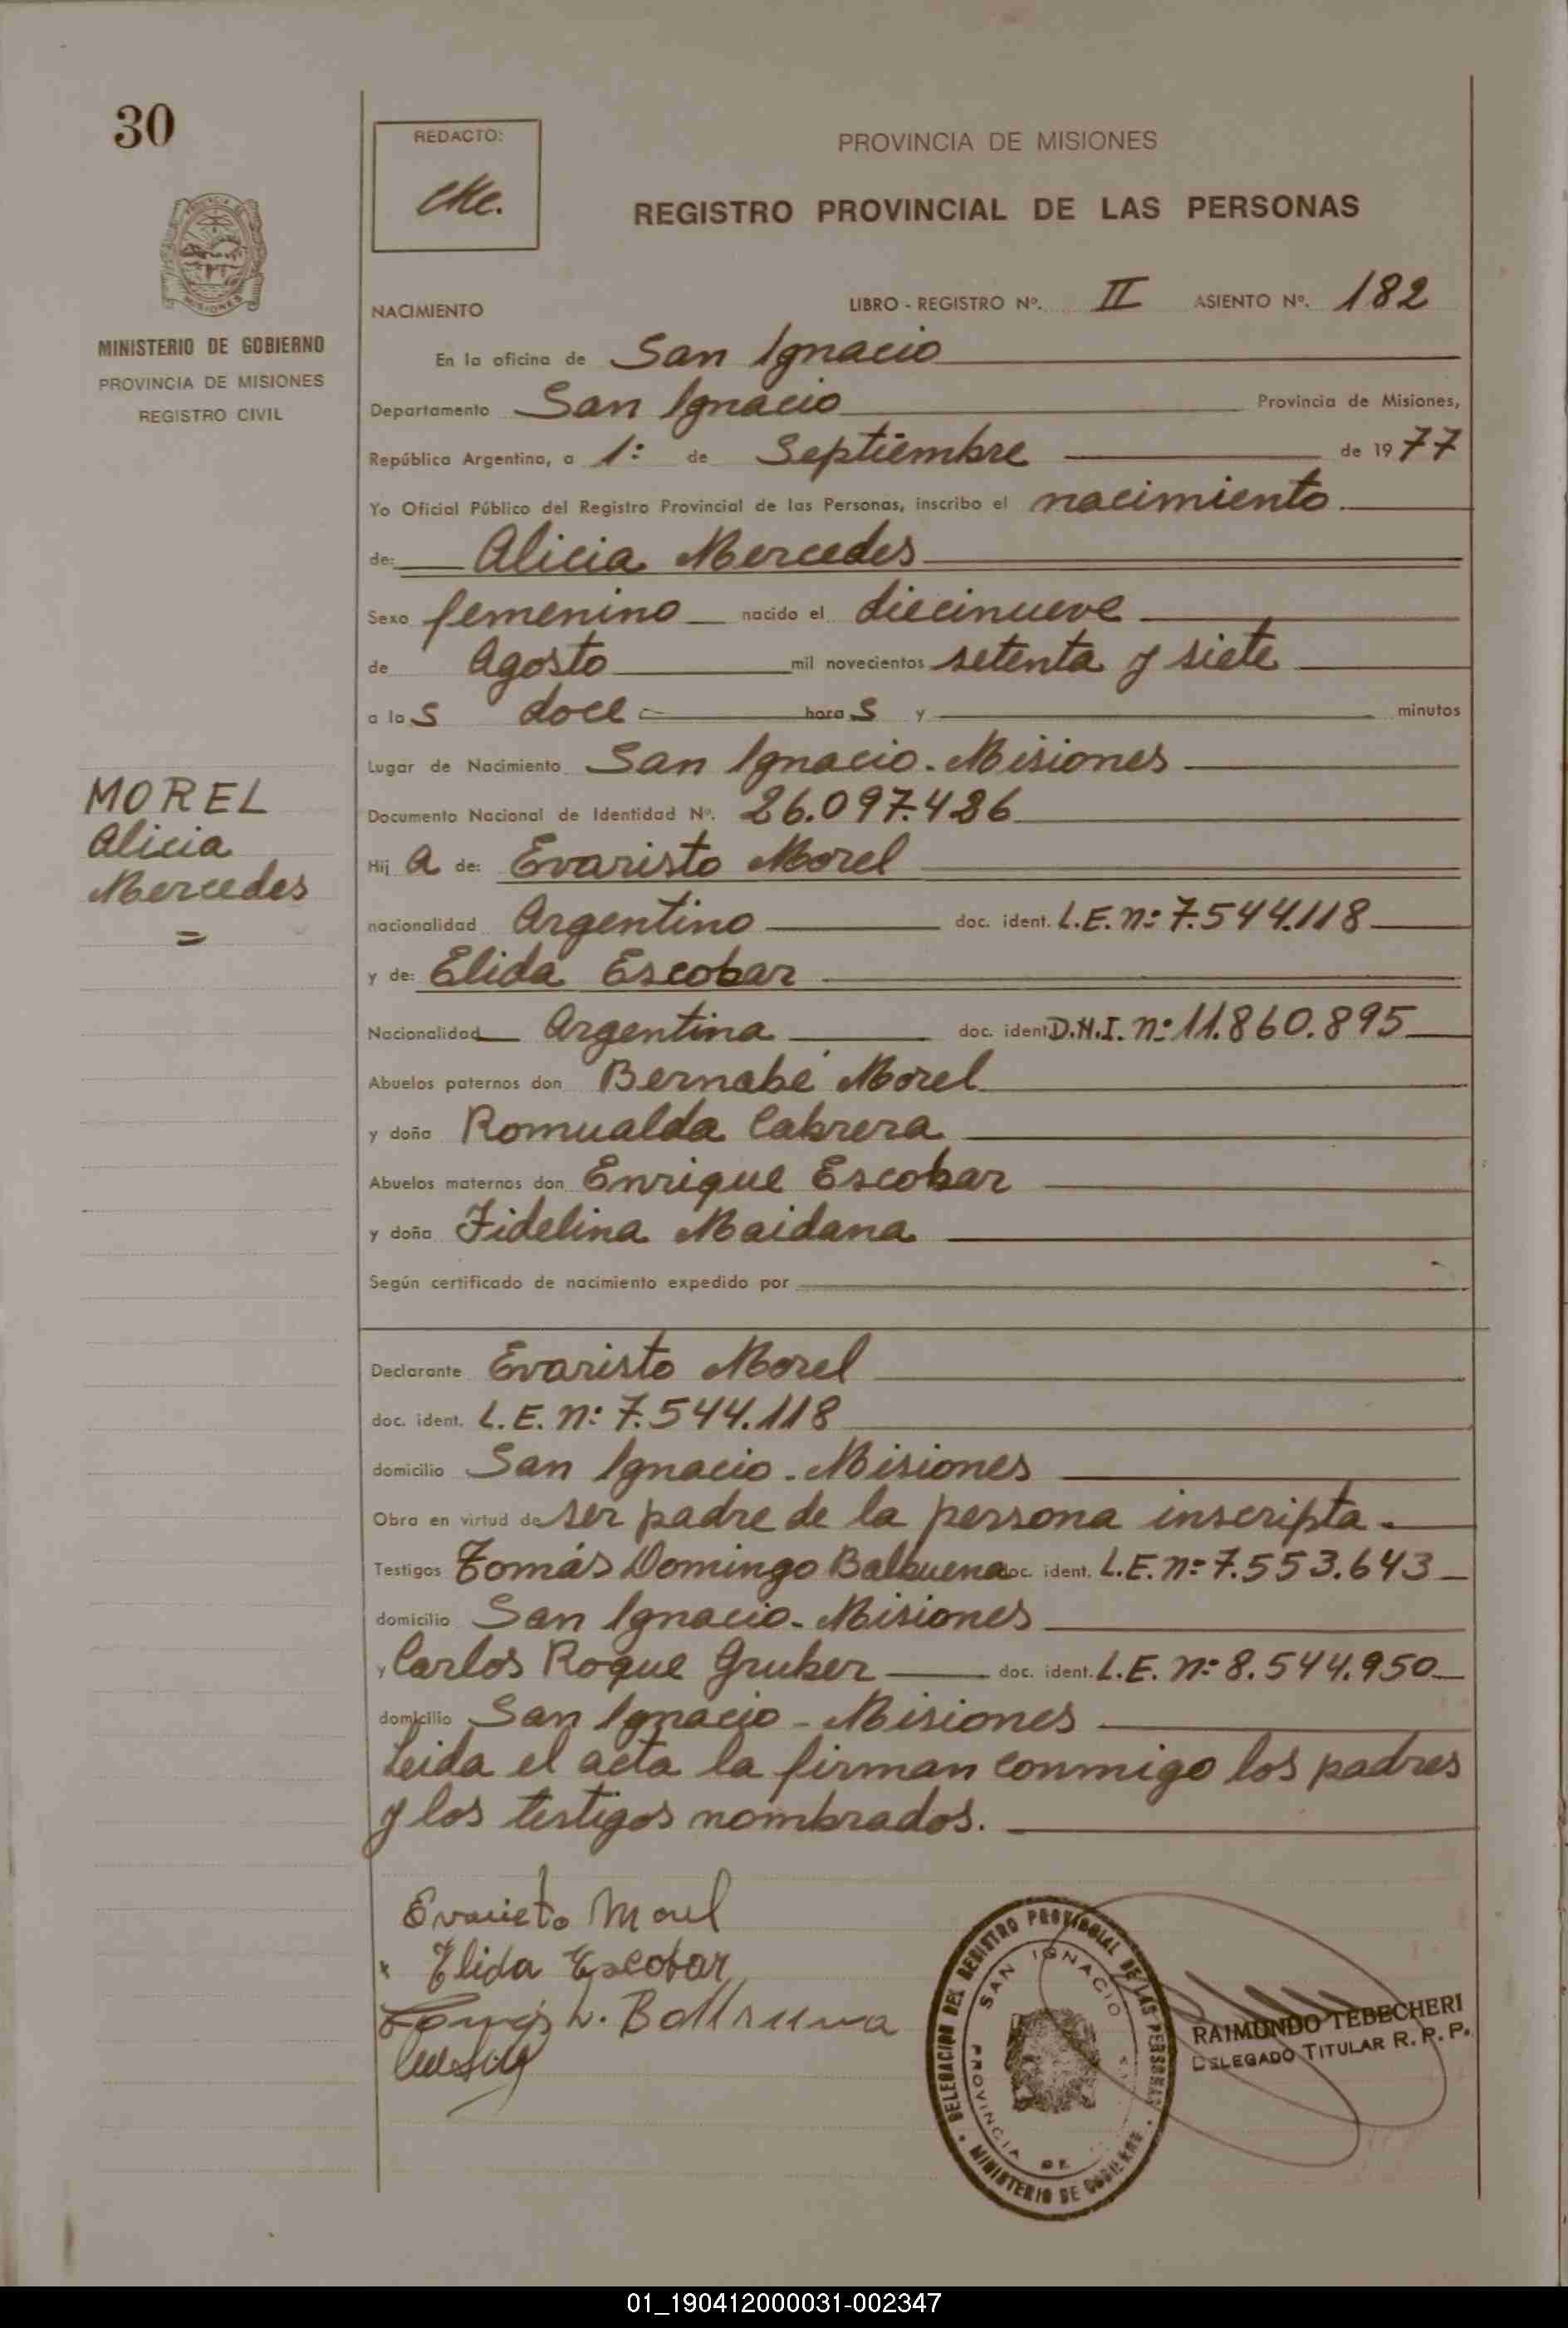 30
REDACTO:
PROVINCIA DE MISIONES
REGISTRO PROVINCIAL DE LAS PERSONAS
MINISTERIO DE GOBIERNO
PROVINCIA DE MISIONES
REGISTRO CIVIL
NACIMIENTO LIBRO - REGISTRO Nº. II ASIENTO Nº. 182
En la oficina de San Ignacio
Departamento San Ignacio Provincia de Misiones,
República Argentina, a 1º de Septiembre de 1977
Yo Oficial Público del Registro Provincial de las Personas, inscribo el nacimiento
de: Alicia Mercedes
Sexo femenino nacido el diecinueve
de Agosto mil novecientos setenta y siete
a las doce horas y minutos
Lugar de Nacimiento San Ignacio - Misiones
Documento Nacional de Identidad Nº. 26.097.426
MOREL
Alicia
Mercedes
=
Hija de: Evaristo Morel
nacionalidad Argentino doc. ident. L.E. nº 7.544.118
y de: Elida Escobar
Nacionalidad Argentina doc. ident. D.N.I. nº 11.860.895
Abuelos paternos don Bernabé Morel
y doña Romualda Cabrera
Abuelos maternos don Enrique Escobar
y doña Fidelina Maidana
Según certificado de nacimiento expedido por
Declarante Evaristo Morel
doc. ident. L.E. nº 7.544.118
domicilio San Ignacio - Misiones
Obra en virtud de ser padre de la persona inscripta.
Testigos Tomás Domingo Balbuena doc. ident. L.E. nº 7.553.643
domicilio San Ignacio - Misiones
y Carlos Roque Gruber doc. ident. L.E. nº 8.544.950
domicilio San Ignacio - Misiones
Leida el acta la firman conmigo los padres
y los testigos nombrados.
Evaristo Morel
Elida Escobar
DELEGACION DEL REGISTRO PROVINCIAL DE LAS PERSONAS
SAN IGNACIO
PROVINCIA DE
MINISTERIO DE GOBIERNO
RAIMUNDO TEBECHERI
DELEGADO TITULAR R. P. P.
01_190412000031-002347